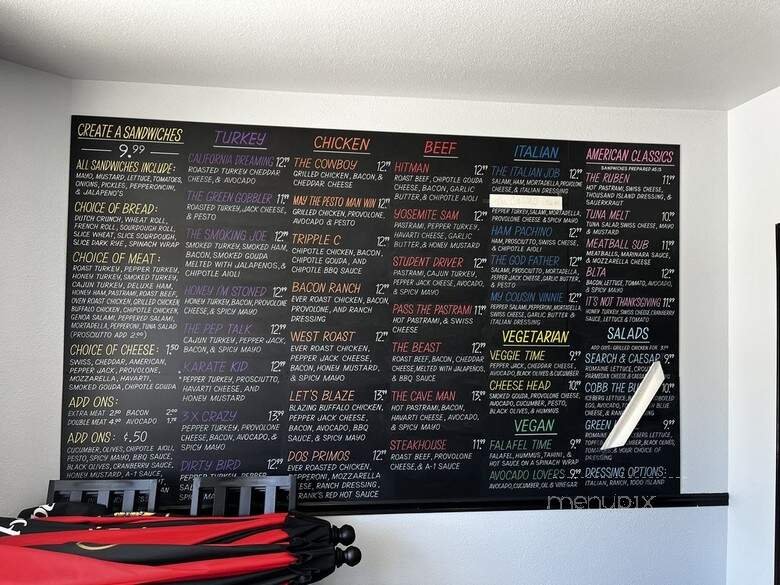 CREATE A SANDWICHES
9.99
ALL SANDWICHES INCLUDE:
MAYO, MUSTARD, LETTUCE, TOMATOES,
ONIONS, PICKLES, PEPPERONCINI,
& JALAPENO'S
CHOICE OF BREAD:
DUTCH CRUNCH, WHEAT ROLL,
FRENCH ROLL, SOURDOUGH ROLL,
SLICE WHEAT, SLICE SOURDOUGH,
SLICE DARK RYE, SPINACH WRAP
CHOICE OF MEAT:
ROAST TURKEY, PEPPER TURKEY,
HONEY TURKEY, SMOKED TURKEY,
CAJUN TURKEY, DELUXE HAM,
HONEY HAM, PASTRAMI, ROAST BEEF,
OVEN ROAST CHICKEN, GRILLED CHICKEN,
BUFFALO CHICKEN, CHIPOTLE CHICKEN,
GENOA SALAMI, PEPPERED SALAMI,
MORTADELLA, PEPPERONI, TUNA SALAD
(PROSCIUTTO ADD 2.00)
CHOICE OF CHEESE: 1.50
SWISS, CHEDDAR, AMERICAN,
PEPPER JACK, PROVOLONE,
MOZZARELLA, HAVARTI,
SMOKED GOUDA, CHIPOTLE GOUDA
ADD ONS:
EXTRA MEAT 2.50 BACON 2.00
DOUBLE MEAT 4.50 AVOCADO 1.75
ADD ONS: $.50
CUCUMBER, OLIVES, CHIPOTLE AIOLI,
PESTO, SPICY MAYO, BBQ SAUCE,
BLACK OLIVES, CRANBERRY SAUCE,
HONEY MUSTARD, A-1 SAUCE,
TURKEY
CALIFORNIA DREAMING 12.99
ROASTED TURKEY CHEDDAR
CHEESE, & AVOCADO
THE GREEN GOBBLER 11.99
ROASTED TURKEY, JACK CHEESE,
& PESTO
THE SMOKING JOE 12.99
SMOKED TURKEY, SMOKED HAM,
BACON, SMOKED GOUDA
MELTED WITH JALAPENOS, &
CHIPOTLE AIOLI
HONEY I'M STONED 12.99
HONEY TURKEY, BACON, PROVOLONE
CHEESE, & SPICY MAYO
THE PEP TALK 12.99
CAJUN TURKEY, PEPPER JACK,
BACON, & SPICY MAYO
KARATE KID 12.99
PEPPER TURKEY, PROSCIUTTO,
HAVARTI CHEESE, AND
HONEY MUSTARD
3 X CRAZY 13.99
PEPPER TURKEY, PROVOLONE
CHEESE, BACON, AVOCADO, &
SPICY MAYO
DIRTY BIRD 12.99
PEPPER TURKEY, PEPPER
CHICKEN
THE COWBOY 12.99
GRILLED CHICKEN, BACON, &
CHEDDAR CHEESE
MAY THE PESTO MAN WIN 12.99
GRILLED CHICKEN, PROVOLONE,
AVOCADO & PESTO
TRIPPLE C 12.99
CHIPOTLE CHICKEN, BACON,
CHIPOTLE GOUDA, AND
CHIPOTLE BBQ SAUCE
BACON RANCH 12.99
EVER ROAST CHICKEN, BACON,
PROVOLONE, AND RANCH
DRESSING
WEST ROAST 12.99
EVER ROAST CHICKEN,
PEPPER JACK CHEESE,
BACON, HONEY MUSTARD,
& SPICY MAYO
LET'S BLAZE 13.99
BLAZING BUFFALO CHICKEN,
PEPPER JACK CHEESE,
BACON, AVOCADO, BBQ
SAUCE, & SPICY MAYO
DOS PRIMOS 12.99
EVER ROASTED CHICKEN,
PEPPERONI, MOZZARELLA
CHEESE, RANCH DRESSING,
FRANK'S RED HOT SAUCE
BEEF
HITMAN 12.99
ROAST BEEF, CHIPOTLE GOUDA
CHEESE, BACON, GARLIC
BUTTER, & CHIPOTLE AIOLI
YOSEMITE SAM 12.99
PASTRAMI, PEPPER TURKEY,
HAVARTI CHEESE, GARLIC
BUTTER, & HONEY MUSTARD
STUDENT DRIVER 12.99
PASTRAMI, CAJUN TURKEY,
PEPPER JACK CHEESE,
& SPICY MAYO
PASS THE PASTRAMI 11.99
HOT PASTRAMI, & SWISS
CHEESE
THE BEAST 12.99
ROAST BEEF, BACON, CHEDDAR
CHEESE, MELTED WITH JALAPENOS,
& BBQ SAUCE
THE CAVE MAN 13.99
HOT PASTRAMI, BACON,
HAVARTI CHEESE, AVOCADO,
& SPICY MAYO
STEAKHOUSE 11.99
ROAST BEEF, PROVOLONE
CHEESE, & A-1 SAUCE
ITALIAN
THE ITALIAN JOB 12.99
SALAMI, HAM, MORTADELLA, PROVOLONE
CHEESE, & ITALIAN DRESSING
PEPPER TURKEY, SALAMI, MORTADELLA,
PEPPERONI, PROVOLONE & SPICY MAYO
HAM PACHINO 12.99
HAM, PROSCIUTTO, SWISS CHEESE,
& CHIPOTLE AIOLI
THE GOD FATHER 12.99
SALAMI, PROSCIUTTO, MORTADELLA,
PEPPER JACK CHEESE, GARLIC BUTTER,
& SPICY MAYO
MY COUSIN VINNIE 12.99
PEPPERED SALAMI, MORTADELLA,
SWISS CHEESE, GARLIC BUTTER &
ITALIAN DRESSING
VEGETARIAN
VEGGIE TIME 9.99
PEPPER JACK, CHEDDAR CHEESE,
AVOCADO, BLACK OLIVES & CUCUMBER
CHEESE HEAD 10.99
SMOKED GOUDA, PROVOLONE CHEESE,
AVOCADO, CUCUMBER, PESTO,
BLACK OLIVES, & HUMMUS
VEGAN
FALAFEL TIME 9.99
FALAFEL, HUMMUS, TAHINI, &
HOT SAUCE ON A SPINACH WRAP
AVOCADO LOVERS 9.99
AVOCADO, CUCUMBER, OIL & VINEGAR
AMERICAN CLASSICS
SANDWICHES PREPARED AS IS
THE RUBEN 11.99
HOT PASTRAMI, SWISS CHEESE,
THOUSAND ISLAND DRESSING, &
SAUERKRAUT
TUNA MELT 10.99
TUNA SALAD, SWISS CHEESE, MAYO
& MUSTARD
MEATBALL SUB 11.99
MEATBALLS, MARINARA SAUCE,
& MOZZARELLA CHEESE
BLTA 12.99
BACON, LETTUCE, TOMATO, AVOCADO,
& SPICY MAYO
IT'S NOT THANKSGIVING 11.99
HONEY TURKEY, SWISS CHEESE, CRANBERRY
SAUCE, LETTUCE & TOMATO
SALADS
ADD ONS- GRILLED CHICKEN FOR
SEARCH & CAESAR 9.99
ROMAINE LETTUCE,
PARMESAN CHEESE & CAESAR
COBB THE
ICEBERG LETTUCE,
EGG, AVOCADO, BLUE
CHEESE, & RANCH
GREEN 9.99
ROMAINE LETTUCE,
CUCUMBER, BLACK OLIVES,
& YOUR CHOICE OF
DRESSING
DRESSING OPTIONS:
ITALIAN, RANCH, 1000 ISLAND
menupix